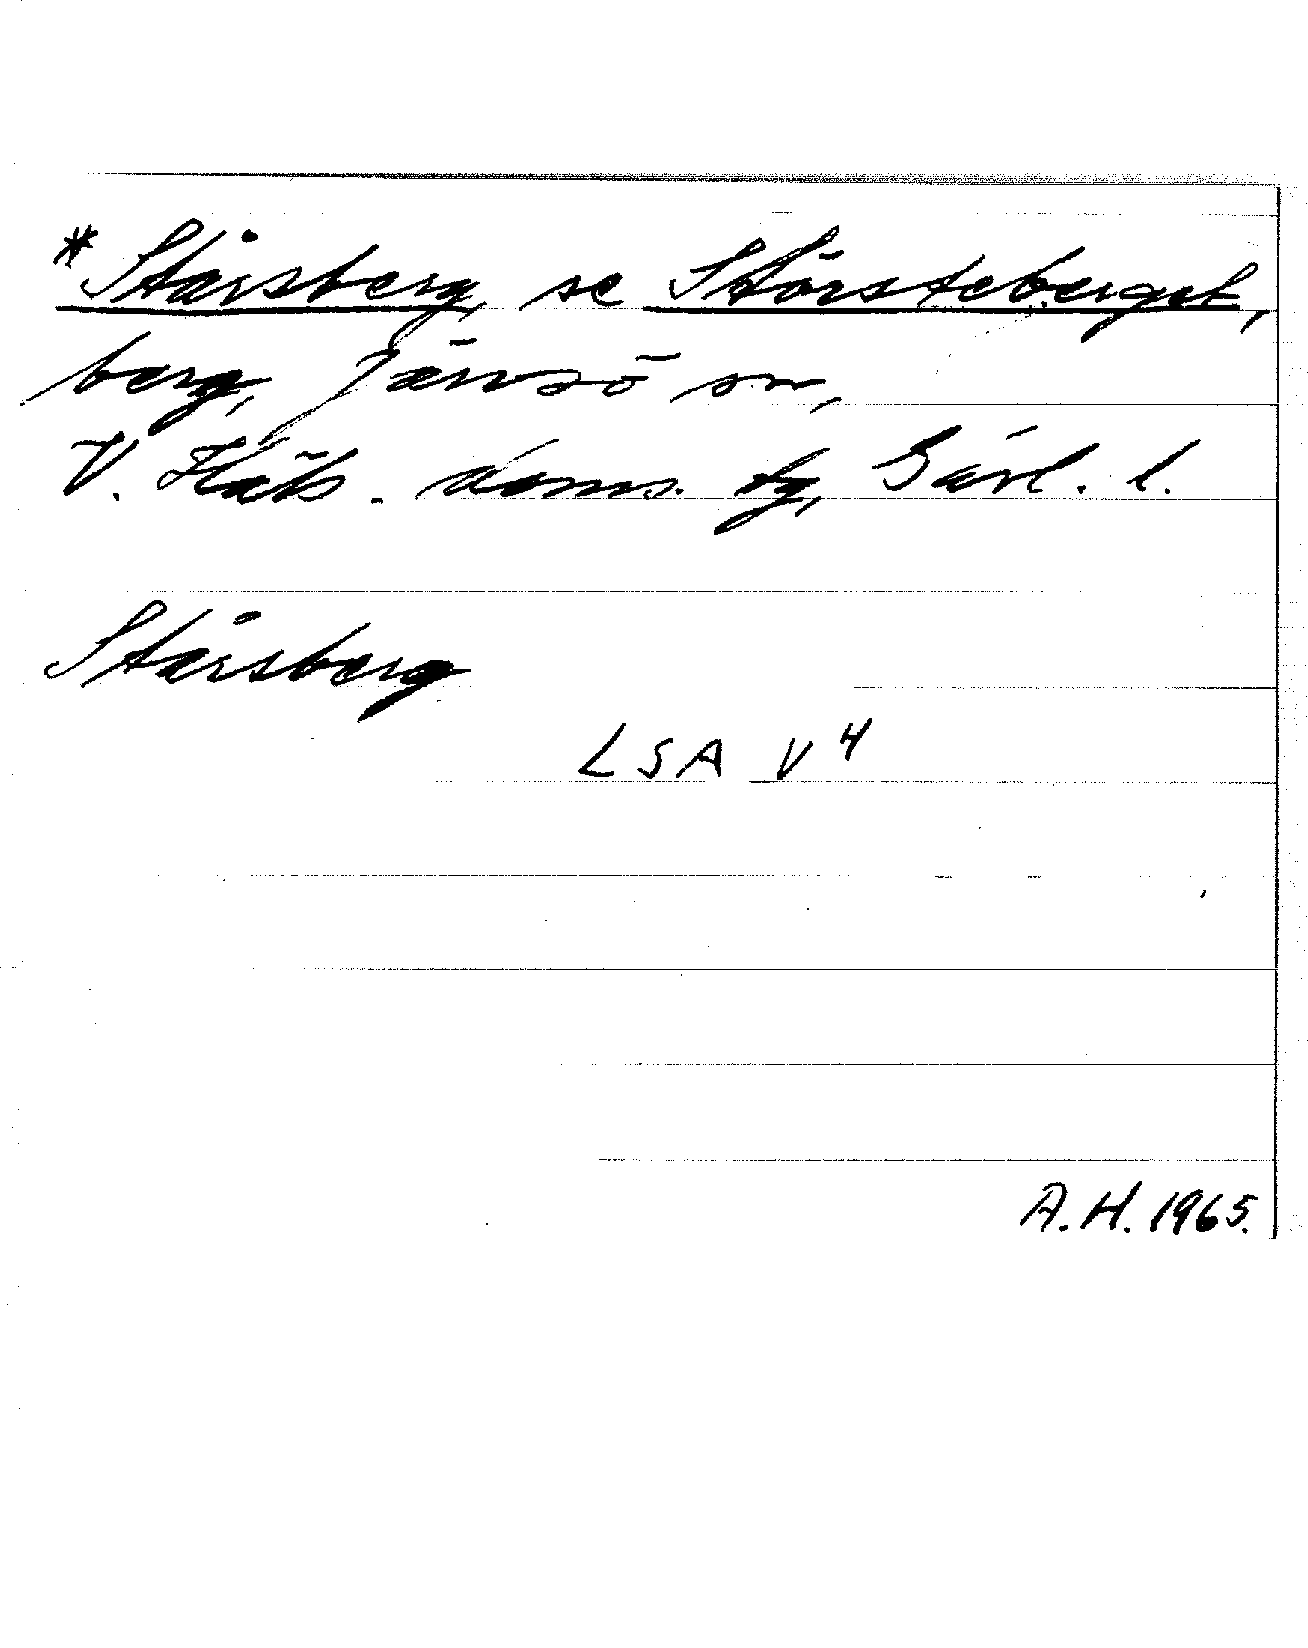 *Stårsberg, se Störsteberget,
berg, Järvsö sn,
V. Häls. doms. tg, Gävl. l.
Stårsberg
LSA V 4
A. H. 1965.